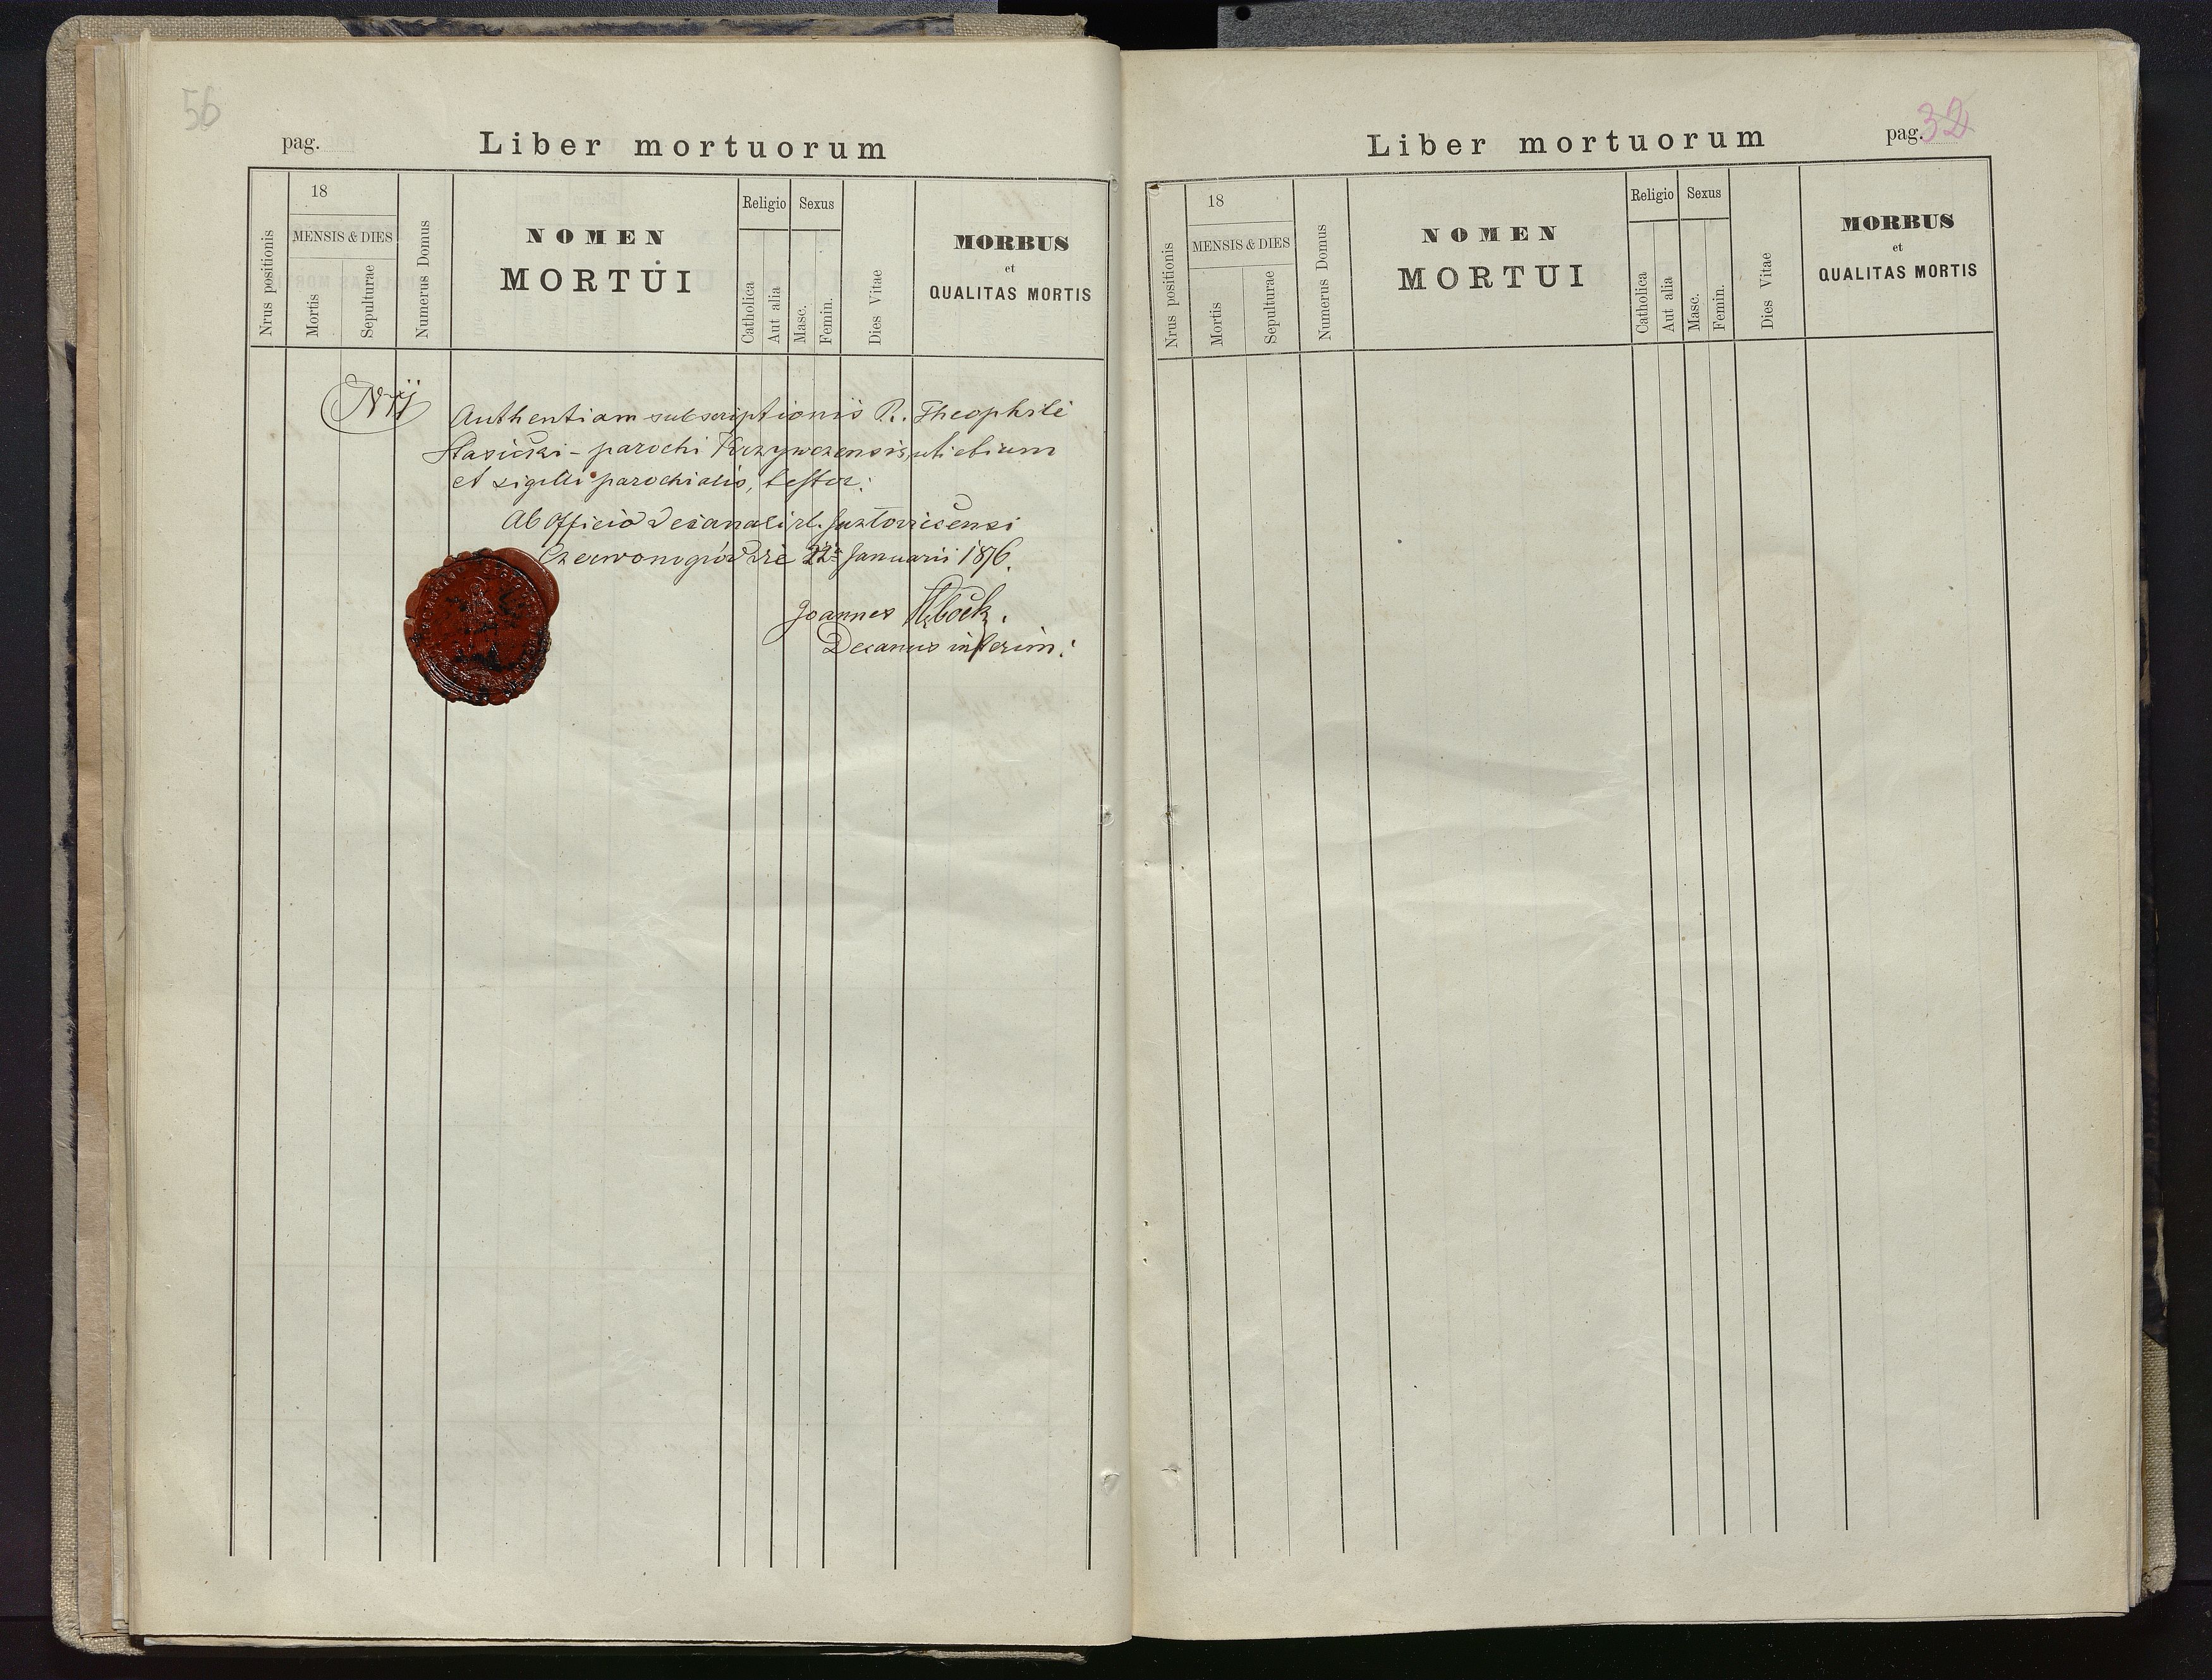 56
pag.
Liber mortuorum
Nrus positionis
18
MENSIS & DIES
Mortis
Sepulturae
Numerus Domus
NOMEN
MORTUI
Religio
Catholica
Aut alia
Sexus
Masc.
Femin.
Dies Vitae
MORBUS
et
QUALITAS MORTIS
Authentiam subscriptionis R. Theophili
parochi Krzywczensis, uti etium
et sigilli parochialis, testor:
Ab officio decanali rl. Jaztoviecensi
Czerwonogródzie 22a Januarii 1876.
Joannes
Decanus interim:
Liber mortuorum
pag. 32
Nrus positionis
18
MENSIS & DIES
Mortis
Sepulturae
Numerus Domus
NOMEN
MORTUI
Religio
Catholica
Aut alia
Sexus
Masc.
Femin.
Dies Vitae
MORBUS
et
QUALITAS MORTIS